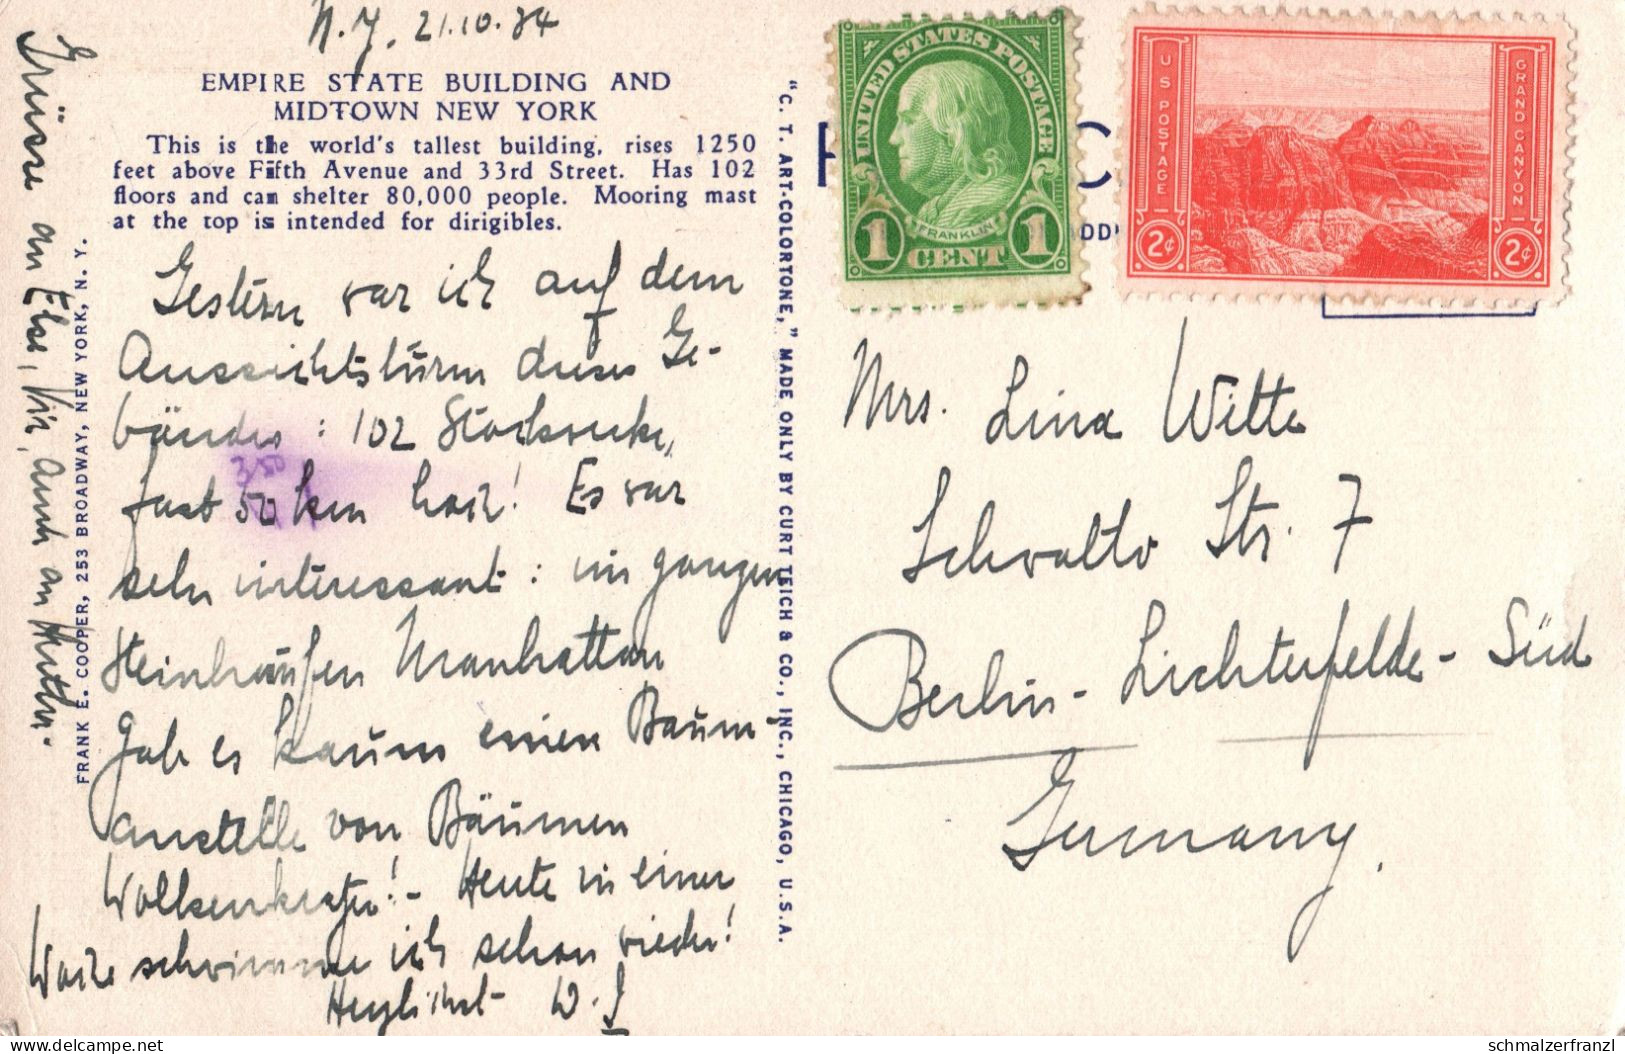 N.Y. 21.10.34
EMPIRE STATE BUILDING AND
MIDTOWN NEW YORK
This is the world's tallest building, rises 1250
feet above Fifth Avenue and 33rd Street. Has 102
floors and can shelter 80,000 people. Mooring mast
at the top is intended for dirigibles.
Gestern war ich auf dem
Aussichtsturm dieses Ge-
bäudes: 102 Stockwerke,
3/50
fast 50 km hoch! Es war
sehr interessant: im ganzen
Steinhaufen Manhattan
gab es kaum einen Baum-
anstelle von Bäumen
Wolkenkratzer! - Heute in einer
Woche schwimme ich schon wieder!
Herzlichst W. J
Grüsse an Else, auch an Mutter.
FRANK E. COOPER, 253 BROADWAY, NEW YORK, N. Y.
"C. T. ART-COLORTONE," MADE ONLY BY CURT TEICH & CO., INC., CHICAGO, U.S.A.
UNITED STATES POSTAGE
FRANKLIN
1 CENT 1
U S POSTAGE
GRAND CANYON
2¢ 2¢
C
ADD
Mrs. Lina Witte
Schwalto Str. 7
Berlin-Lichterfelde-Süd
Germany.
schmalzerfranzl
delcampe.net